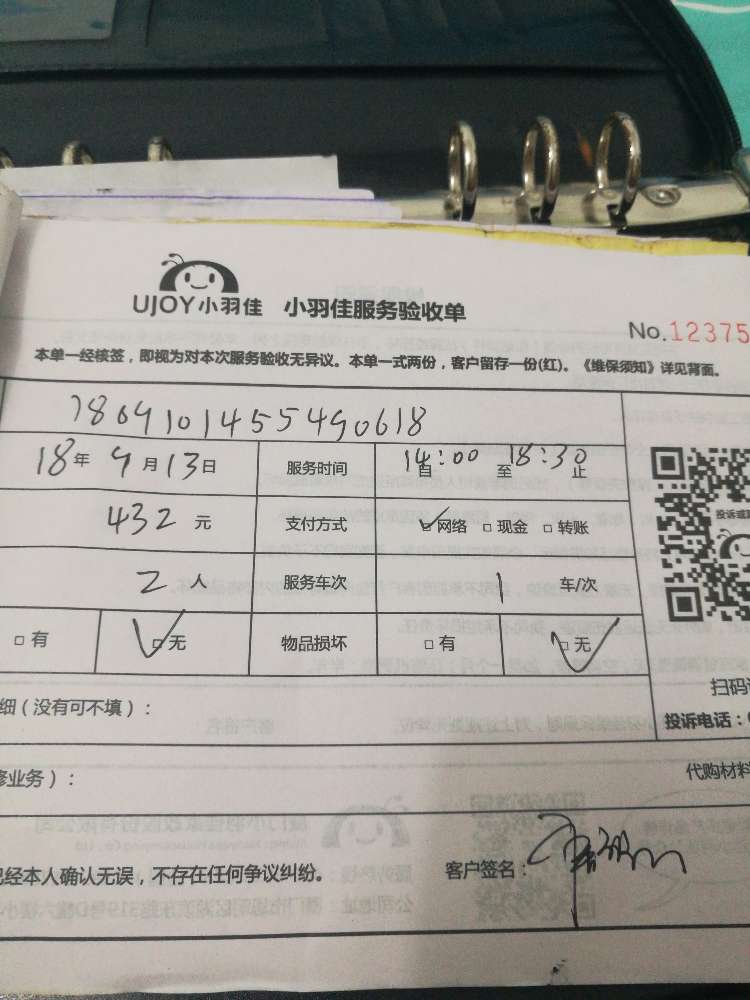 UJOY小羽佳 小羽佳服务验收单
No.12375
本单一经核签，即视为对本次服务验收无异议。本单一式两份，客户留存一份(红)。《维保须知》详见背面。
18年9月13日 服务时间 14:00自 至 18:30止
432元 支付方式 ☑网络 □现金 □转账
投诉或
2人 服务车次 1 车/次
□有 ☑无 物品损坏 □有 ☑无
扫码
细（没有可不填）：
投诉电话：
修业务）： 代购材料
已经本人确认无误，不存在任何争议纠纷。 客户签名：